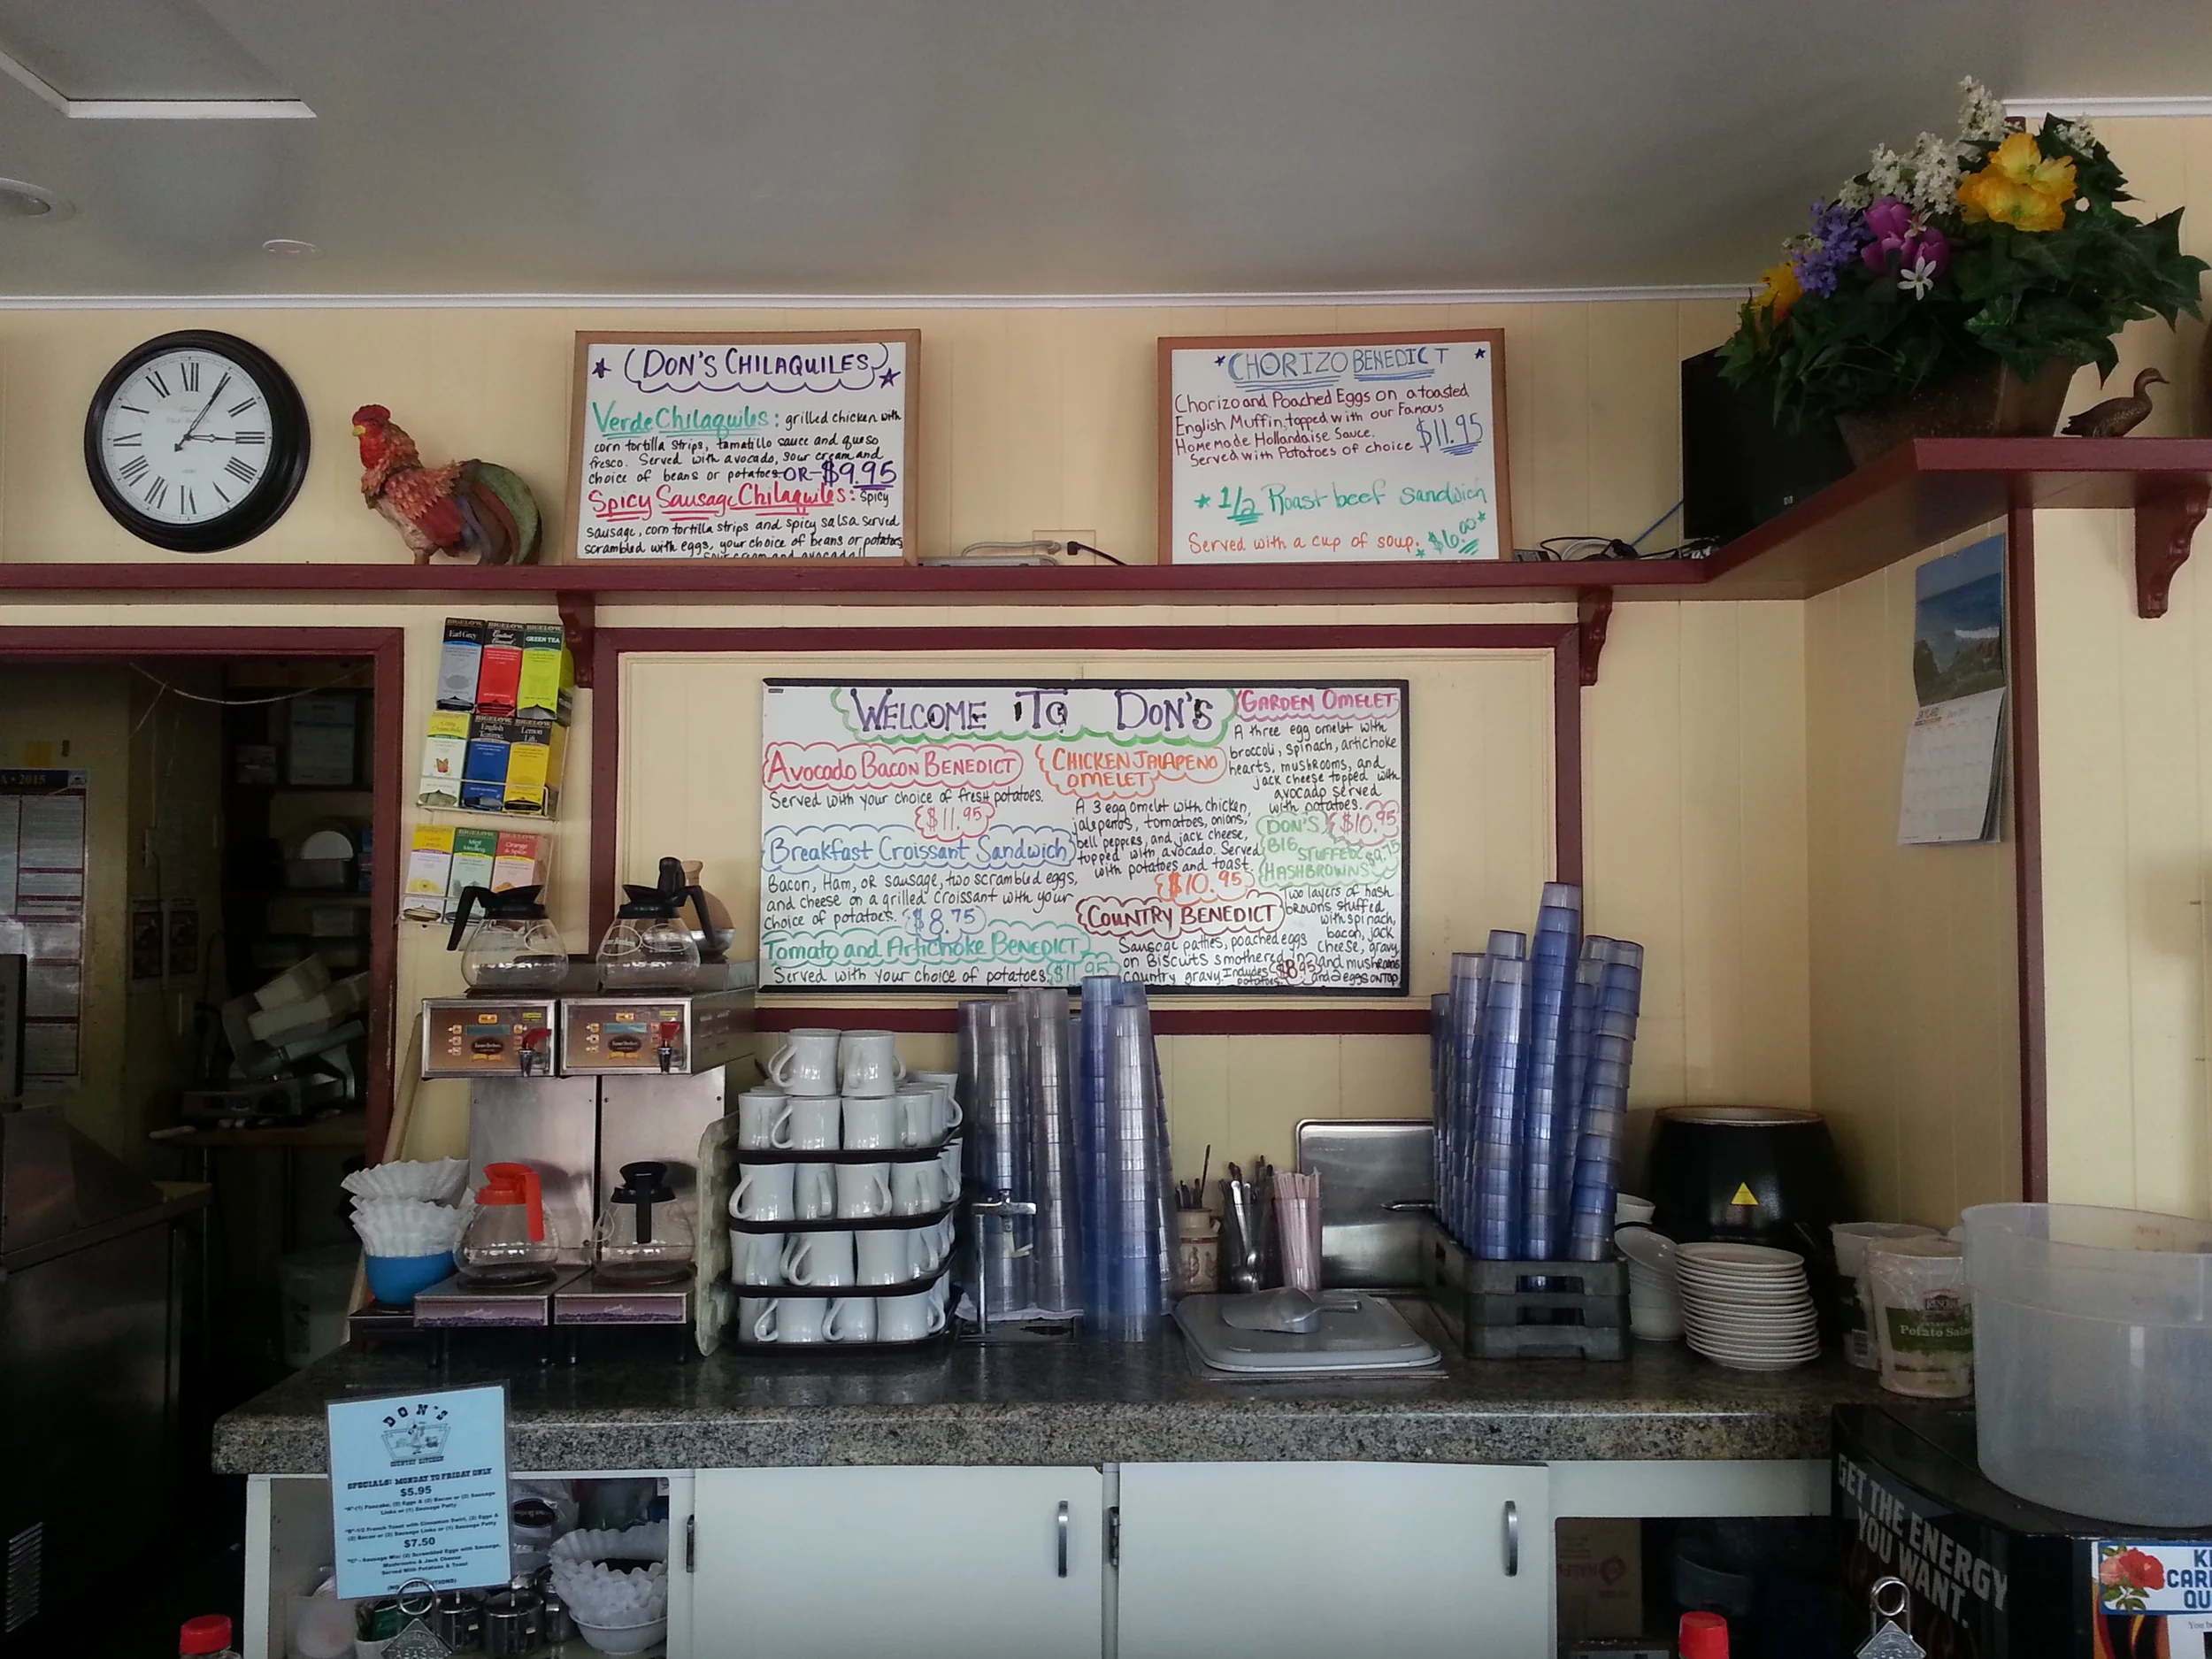 DON'S CHILAQUILES
Verde Chilaquiles: grilled chicken with
corn tortilla strips, tamatillo sauce and queso
fresco. Served with avocado, sour cream and
choice of beans or potatoes-OR-$9.95
Spicy Sausage Chilaquiles: Spicy
sausage, corn tortilla strips and spicy salsa served
scrambled with eggs, your choice of beans or potatoes,
sour cream and avocado!!
CHORIZO BENEDICT
Chorizo and Poached Eggs on a toasted
English Muffin, topped with our Famous
Homemade Hollandaise Sauce.
Served with Potatoes of choice $11.95
1/2 Roast beef sandwich
Served with a cup of soup. $6.00
BIGELOW
Earl Grey
BIGELOW
BIGELOW
GREEN TEA
BIGELOW
English
Teatime
BIGELOW
Lemon
Lift
BIGELOW
Mint
Medley
BIGELOW
Orange
& Spice
WELCOME TO DON'S
AVOCADO BACON BENEDICT
Served with your choice of fresh potatoes.
$11.95
Breakfast Croissant Sandwich
Bacon, Ham, or sausage, two scrambled eggs,
and cheese on a grilled croissant with your
choice of potatoes. $8.75
Tomato and Artichoke BENEDICT
Served with your choice of potatoes $11.95
CHICKEN JALAPENO
OMELET
A 3 egg omelet with chicken,
jalepeños, tomatoes, onions,
bell peppers, and jack cheese,
topped with avocado. Served
with potatoes and toast.
$10.95
COUNTRY BENEDICT
Sausage patties, poached eggs
on Biscuits smothered in
country gravy. Includes
potatoes. $8.95
GARDEN OMELET
A three egg omelet with
broccoli, spinach, artichoke
hearts, mushrooms, and
jack cheese topped with
avocado served
with potatoes.
$10.95
DON'S
BIG
STUFFED $9.75
HASHBROWNS
Two layers of hash
browns stuffed
with spinach,
bacon, jack
cheese, gravy
and mushrooms
and 2 eggs on TOP
A • 2015
hp
DON'S
COUNTRY KITCHEN
SPECIALS: MONDAY TO FRIDAY ONLY
$5.95
"A"-(1) Pancake, (2) Eggs & (2) Bacon or (2) Sausage
Links or (1) Sausage Patty
"B"-1/2 French Toast with Cinnamon Swirl, (2) Eggs &
(2) Bacon or (2) Sausage Links or (1) Sausage Patty
$7.50
"C" - Sausage Mix: (2) Scrambled Eggs with Sausage,
Mushrooms & Jack Cheese
Served With Potatoes & Toast
Potato Salad
GET THE ENERGY
YOU WANT.